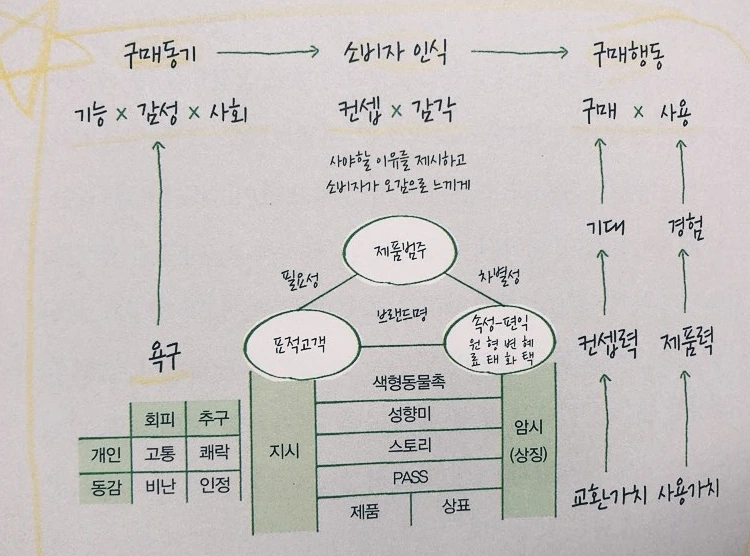 구매동기 → 소비자 인식 → 구매행동
기능 x 감성 x 사회
컨셉 x 감각
구매 x 사용
사야할 이유를 제시하고
소비자가 오감으로 느끼게
기대
경험
제품범주
필요성
차별성
브랜드명
표적고객
속성-편익
원 형 변 혜
료 태 화 택
욕구
컨셉력
제품력
회피 추구
개인 고통 쾌락
동감 비난 인정
지시
색형동물촉
성향미
스토리
PASS
제품 상표
암시
(상징)
교환가치 사용가치